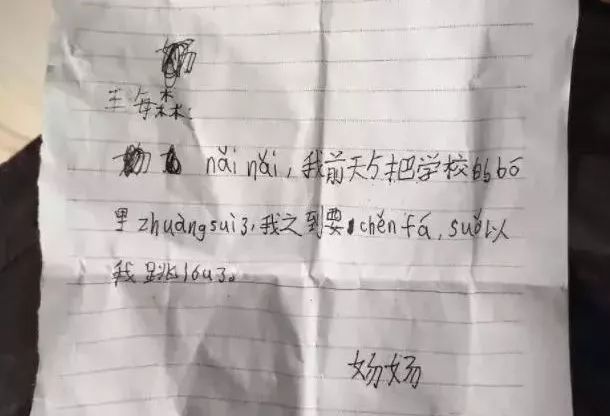 王每森:
nǎi nǎi, 我前天与把学校的bō
里zhuàngsuì了, 我之到要chěnfá, suǒ以
我跳lóu了。